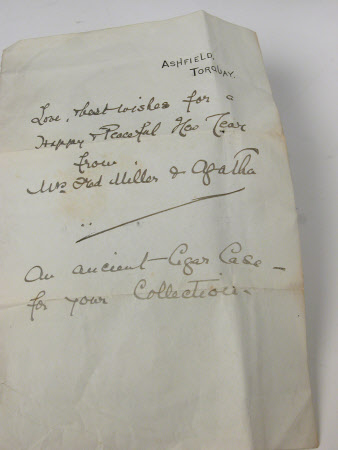 ASHFIELD,
TORQUAY.
Love, & best wishes for a
Happy & Peaceful New Year
from
Mrs Fred Miller & Agatha
An ancient Cigar Case -
for your Collection -